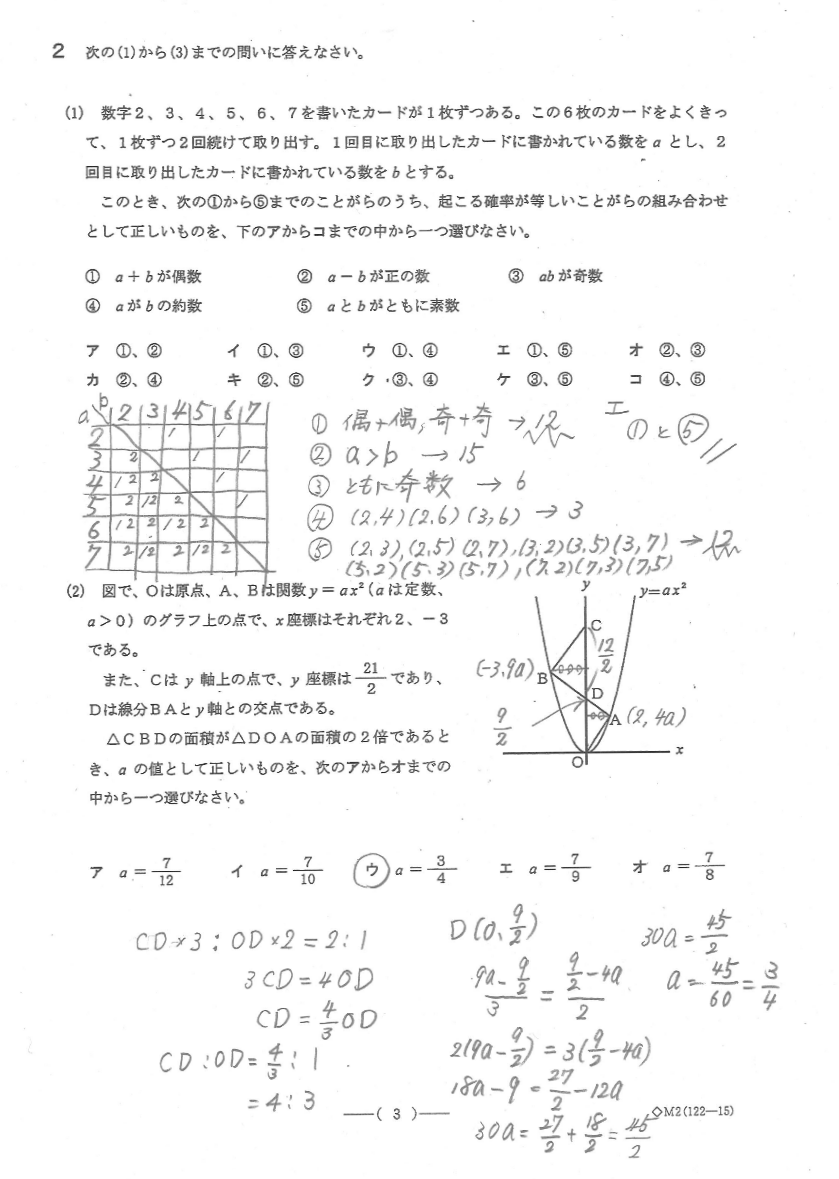 2 次の(1)から(3)までの問いに答えなさい。
(1) 数字2、3、4、5、6、7を書いたカードが1枚ずつある。この6枚のカードをよくきっ
て、1枚ずつ2回続けて取り出す。1回目に取り出したカードに書かれている数をaとし、2
回目に取り出したカードに書かれている数をbとする。
このとき、次の①から⑤までのことがらのうち、起こる確率が等しいことがらの組み合わせ
として正しいものを、下のアからコまでの中から一つ選びなさい。
① a+bが偶数 ② a-bが正の数 ③ abが奇数
④ aがbの約数 ⑤ aとbがともに素数
ア ①、② イ ①、③ ウ ①、④ エ ①、⑤ オ ②、③
カ ②、④ キ ②、⑤ ク ③、④ ケ ③、⑤ コ ④、⑤
a b 2 3 4 5 6 7
2 1 1
3 2 1 1
4 1 2 2 1
5 2 12 2 1
6 1 2 2 1 2 2
7 2 12 2 12 2
① 偶+偶, 奇+奇 → 12
② a>b → 15
③ ともに奇数 → 6
④ (2,4)(2,6)(3,6) → 3
⑤ (2,3),(2,5)(2,7),(3,2)(3,5)(3,7) → 12
(5,2)(5,3)(5,7),(7,2)(7,3)(7,5)
エ
①と⑤
(2) 図で、Oは原点、A、Bは関数y=ax²(aは定数、
a>0)のグラフ上の点で、x座標はそれぞれ2、-3
である。
また、Cはy軸上の点で、y座標は21/2であり、
Dは線分BAとy軸との交点である。
△CBDの面積が△DOAの面積の2倍であると
き、aの値として正しいものを、次のアからオまでの
中から一つ選びなさい。
y
y=ax²
C
12/2
(-3,9a)
B
D
9/2
A (2, 4a)
O
x
ア a=7/12 イ a=7/10 ウ a=3/4 エ a=7/9 オ a=7/8
CD×3:OD×2=2:1
3CD=4OD
CD=4/3OD
CD:OD=4/3:1
=4:3
D(0, 9/2)
(9a-9/2)/3=(9/2-4a)/2
2(9a-9/2)=3(9/2-4a)
18a-9=27/2-12a
30a=27/2+18/2=45/2
30a=45/2
a=45/60=3/4
( 3 )
◇M2(122—15)